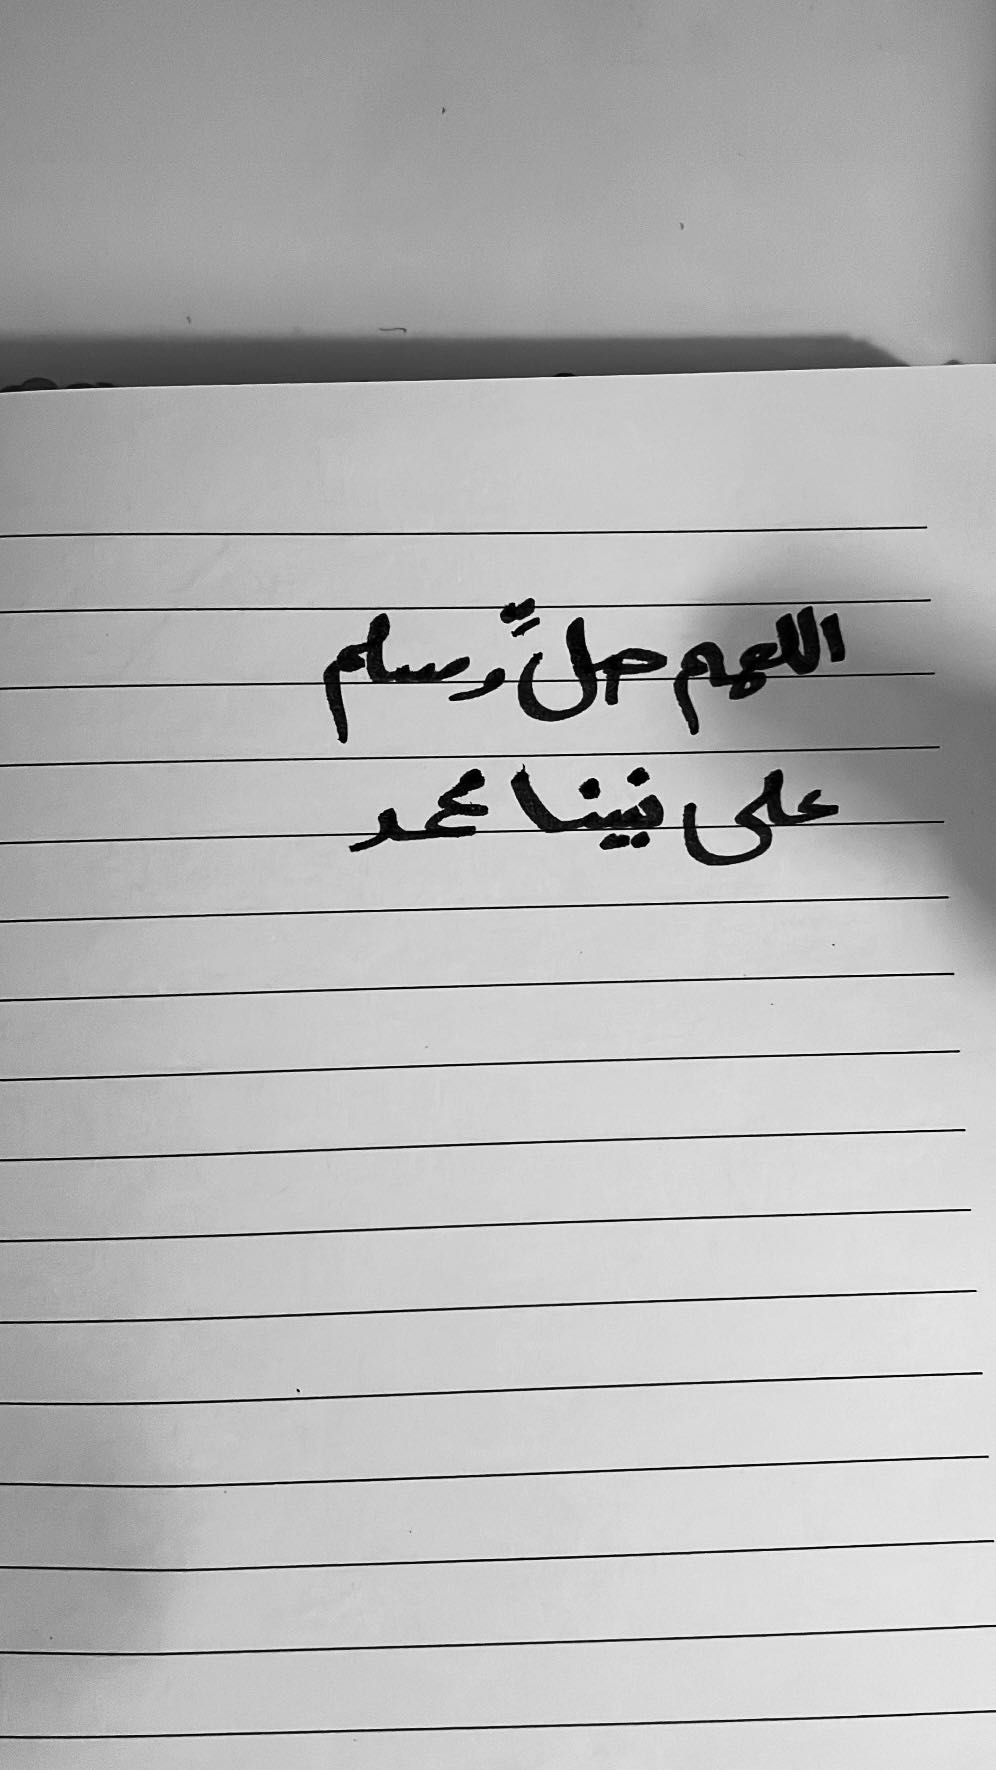 اللهم صلِّ وسلم
على نبينا محمد